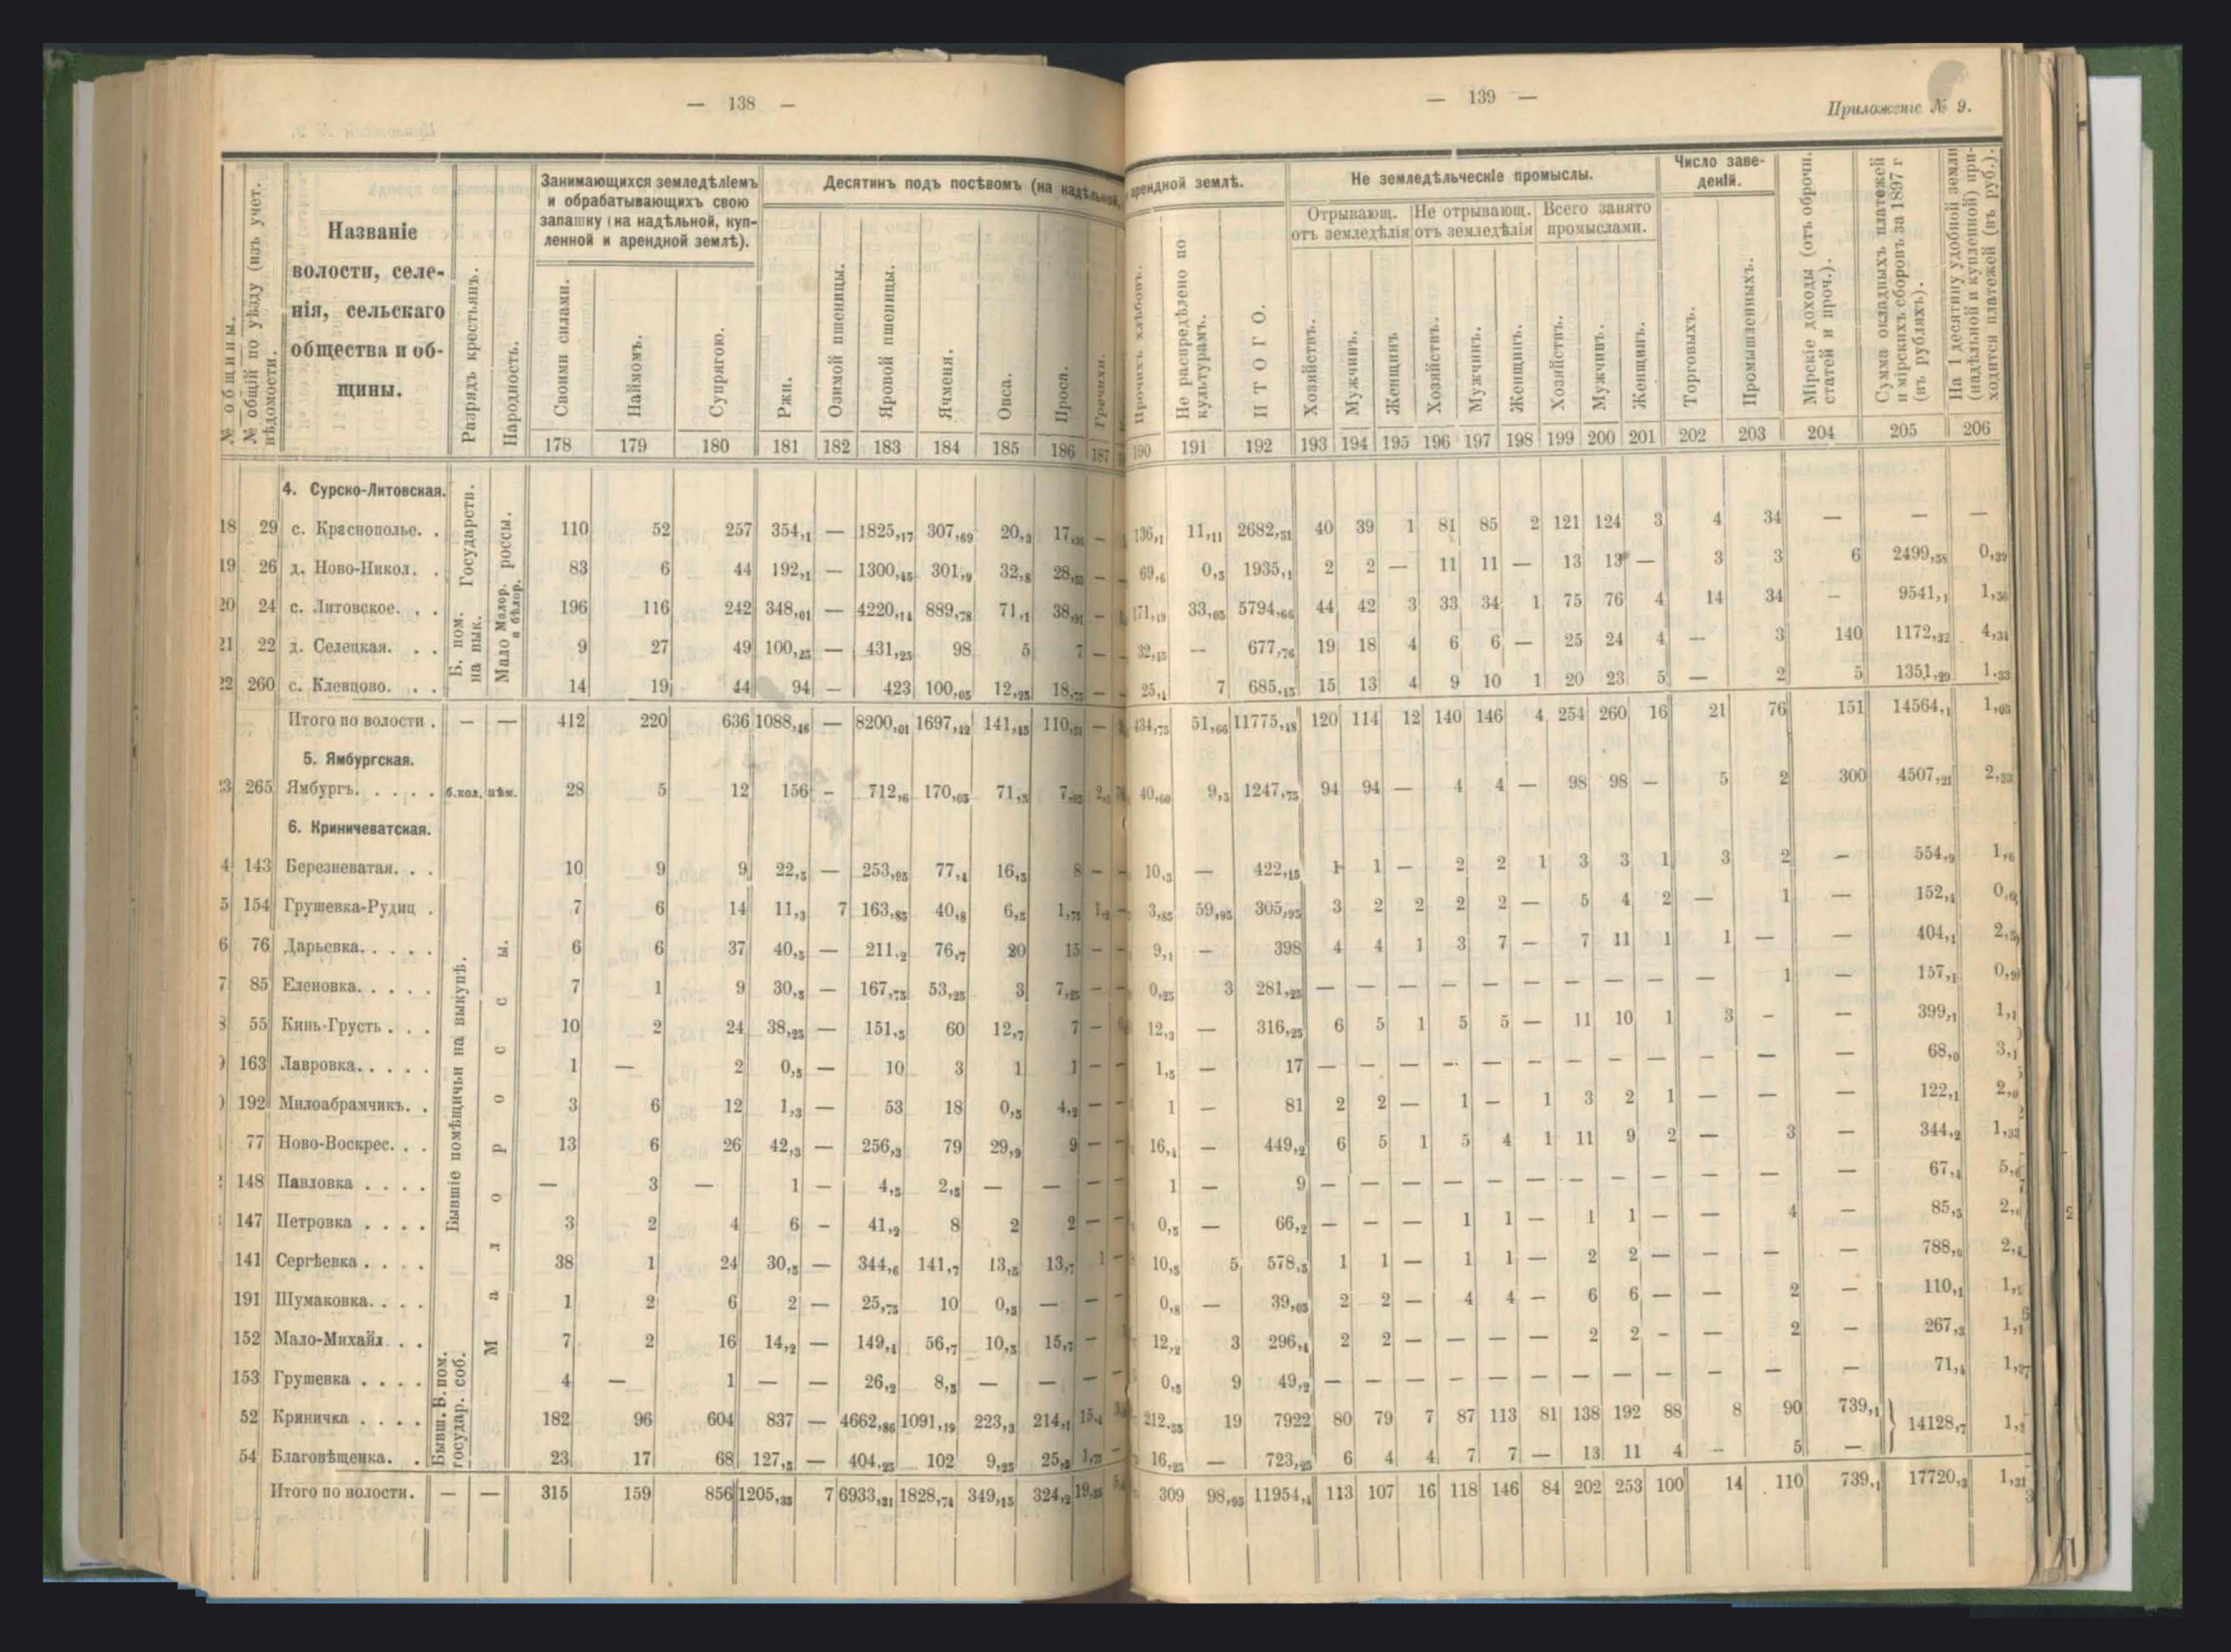 — 138 —
— 139 —
Приложеніе № 9.
№ общины.
№ общій по уѣзду (изъ учет. вѣдомости.
Названіе
волости, селе-
нія, сельскаго
общества и об-
щины.
Разрядъ крестьянъ.
Народность.
Занимающихся земледѣліемъ
и обрабатывающихъ свою
запашку (на надѣльной, куп-
ленной и арендной землѣ).
Своими силами.
Наймомъ.
Супрягою.
Десятинъ подъ посѣвомъ (на надѣльной,
арендной землѣ.
Ржи.
Озимой пшеницы.
Яровой пшеницы.
Ячменя.
Овса.
Проса.
Гречихи.
Прочихъ хлѣбовъ.
Не распредѣлено по
культурамъ.
ИТОГО.
Не земледѣльческіе промыслы.
Отрывающ.
отъ земледѣлія
Не отрывающ.
отъ земледѣлія
Всего занято
промыслами.
Хозяйствъ.
Мужчинъ.
Женщинъ
Хозяйствъ.
Мужчинъ.
Женщинъ.
Хозяйствъ.
Мужчинъ.
Женщинъ.
Число заве-
деній.
Торговыхъ.
Промышленныхъ.
Мірскіе доходы (отъ оброчн.
статей и проч.).
Сумма окладныхъ платежей
и мірскихъ сборовъ за 1897 г
(въ рубляхъ).
На 1 десятину удобной земли
(надѣльной и купленной) при-
ходится платежей (въ руб.).
178 179 180 181 182 183 184 185 186 187 190 191 192 193 194 195 196 197 198 199 200 201 202 203 204 205 206
4. Сурско-Литовская.
Государств.
Б. пом.
на вык.
Мало россы.
Малор.
и бѣлор.
18 29 с. Краснополье. . 110 52 257 354,1 — 1825,17 307,69 20,3 17,36 — 136,1 11,11 2682,51 40 39 1 81 85 2 121 124 3 4 34 — — —
19 26 д. Ново-Никол. . 83 6 44 192,1 — 1300,45 301,9 32,8 28,55 — 69,6 0,5 1935,1 2 2 — 11 11 — 13 13 — 3 3 6 2499,38 0,39
20 24 с. Литовское. . . 196 116 242 348,01 — 4220,14 889,78 71,1 38,91 — 171,19 33,05 5794,66 44 42 3 33 34 1 75 76 4 14 34 — 9541,1 1,36
21 22 д. Селецкая. . . 9 27 49 100,25 — 431,25 98 5 7 — 32,15 — 677,76 19 18 4 6 6 — 25 24 4 — 3 140 1172,32 4,34
22 260 с. Клевцово. . . 14 19 44 94 — 423 100,05 12,25 18,75 — 25,4 7 685,15 15 13 4 9 10 1 20 23 5 — 2 5 1351,29 1,33
Итого по волости . — — 412 220 636 1088,46 — 8200,01 1697,42 141,45 110,51 — 434,75 51,66 11775,18 120 114 12 140 146 4 254 260 16 21 76 151 14564,1 1,05
5. Ямбургская.
265 Ямбургъ. . . . . б.кол. нѣм. 28 5 12 156 - 712,6 170,05 71,5 40,60 9,5 1247,75 94 94 — 4 4 — 98 98 — 5 2 300 4507,21 2,33
6. Криничеватская.
Бывшіе помѣщичьи на выкупѣ.
Малороссы.
4 143 Березневатая. . . 10 9 9 22,5 — 253,95 77,4 16,5 8 — 10,3 — 422,15 1 1 — 2 2 1 3 3 1 3 2 — 554,9 1,6
5 154 Грушевка-Рудиц . 7 6 14 11,3 7 163,85 40,8 6,5 1,75 3,85 59,95 305,95 3 2 2 2 2 — 5 4 2 — 1 — 152,4
6 76 Дарьевка. . . . . 6 6 37 40,5 — 211,2 76,7 20 15 — 9,1 - 398 4 4 1 3 7 — 7 11 1 1 — — 404,1 2,5
7 85 Еленовка. . . . . 7 1 9 30,5 — 167,75 53,25 3 7,25 — 0,25 3 281,25 — — — — — — — — — — 1 — 157,1 0,9
55 Кинь-Грусть . . . 10 2 24 38,25 — 151,5 60 12,7 7 — 12,3 — 316,25 6 5 1 5 5 — 11 10 1 3 - — 399,1 1,1
163 Лавровка. . . . . 1 — 2 0,5 — 10 3 1 1 — 1,5 — 17 — — — — — — — — — — — — 68,0 3,1
192 Милоабрамчикъ. . 3 6 12 1,3 — 53 18 0,5 4,2 — 1 — 81 2 2 — 1 — 1 3 2 1 — — — 122,1
77 Ново-Воскрес. . . 13 6 26 42,3 — 256,3 79 29,9 9 — 16,4 — 449,2 6 5 1 5 4 1 11 9 2 — 3 — 344,2 1,33
148 Павловка . . . . — 3 — 1 — 4,5 2,5 — — — 1 — 9 — — — — — — — — — — — — 67,4
147 Петровка . . . . 3 2 4 6 - 41,2 8 2 2 — 0,5 — 66,2 — — — 1 1 — 1 1 — — 4 — 85,5
141 Сергѣевка . . . . 38 1 24 30,5 — 344,6 141,7 13,5 13,7 1 10,5 5 578,5 1 1 — 1 1 — 2 2 — — — — 788,0
191 Шумаковка. . . . 1 2 6 2 — 25,75 10 0,5 — — 0,8 — 39,05 2 2 — 4 4 — 6 6 — — 2 — 110,1
152 Мало-Михайл . . 7 2 16 14,2 — 149,4 56,7 10,5 15,7 — 12,2 3 296,4 2 2 — — — — 2 2 - — 2 — 267,3
153 Грушевка . . . . 4 — 1 — — 26,2 8,5 — — — 0,5 9 49,2 — — — — — — — — — — — — 71,4
Бывш. Б. пом.
государ. соб.
52 Криничка . . . . 182 96 604 837 — 4662,86 1091,19 223,3 214,1 212,55 19 7922 80 79 7 87 113 81 138 192 88 8 90 739,1 14128,7
54 Благовѣщенка. . 23 17 68 127,5 — 404,25 102 9,25 16,25 — 723,25 6 4 4 7 7 — 13 11 4 - 5 —
Итого по волости. — — 315 159 856 1205,35 7 6933,31 1828,74 349,15 324,2 309 98,95 11954,4 113 107 16 118 146 84 202 253 100 14 110 739,1 17720,3 1,31